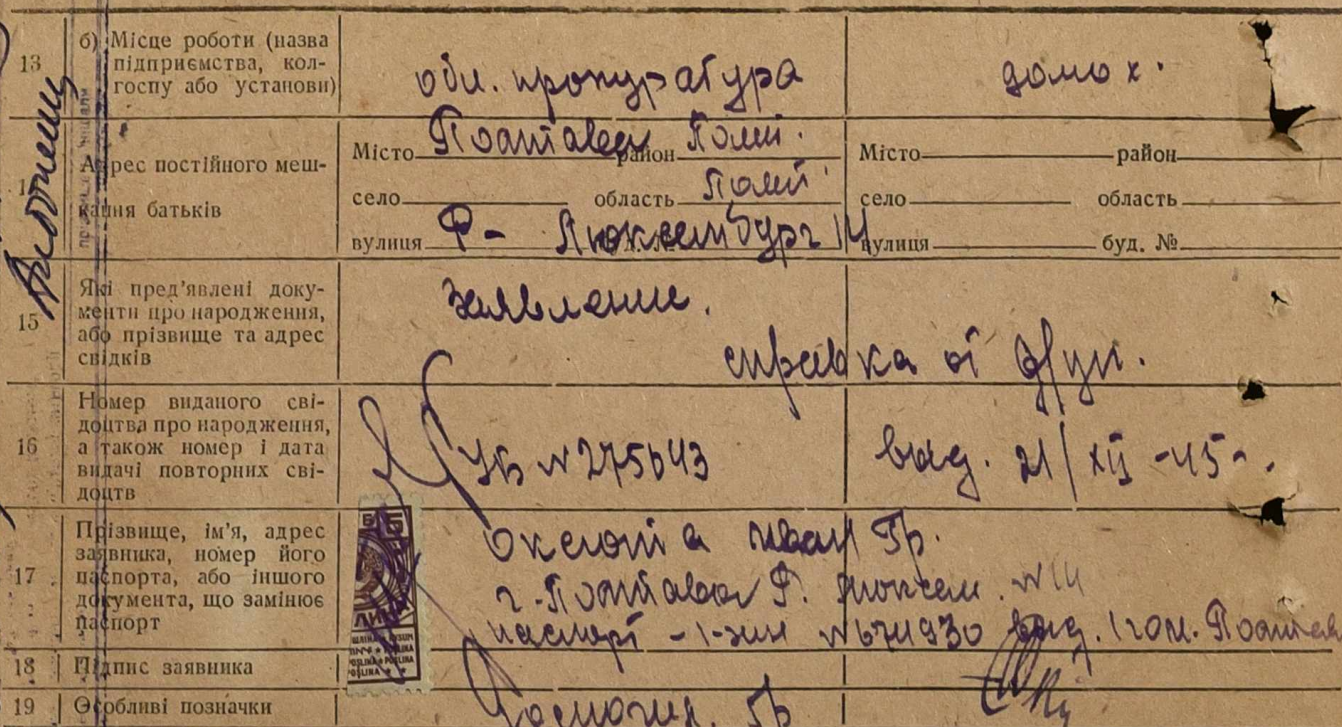 13 б) Місце роботи (назва
підприємства, кол-
госпу або установи)
обл. прокуратура
домох.
Адрес постійного меш-
кання батьків
Місто Полтава район Полт.
село область Полт.
вулиця Р- Люксембург 14
Місто район
село область
вулиця буд. №
15 Які пред'явлені доку-
менти про народження,
або прізвище та адрес
свідків
Заявление.
справка от
16 Номер виданого сві-
доцтва про народження,
а також номер і дата
видачі повторних сві-
доцтв
УБ № 275643
выд. 21/XII-45-.
17 Прізвище, ім'я, адрес
заявника, номер його
паспорта, або іншого
документа, що замінює
паспорт
Иван Гр.
г. Полтава Р. Люксем. № 14
паспорт № 674930 выд 1 гом. Полтав
18 Підпис заявника
19 Особливі позначки
Гр